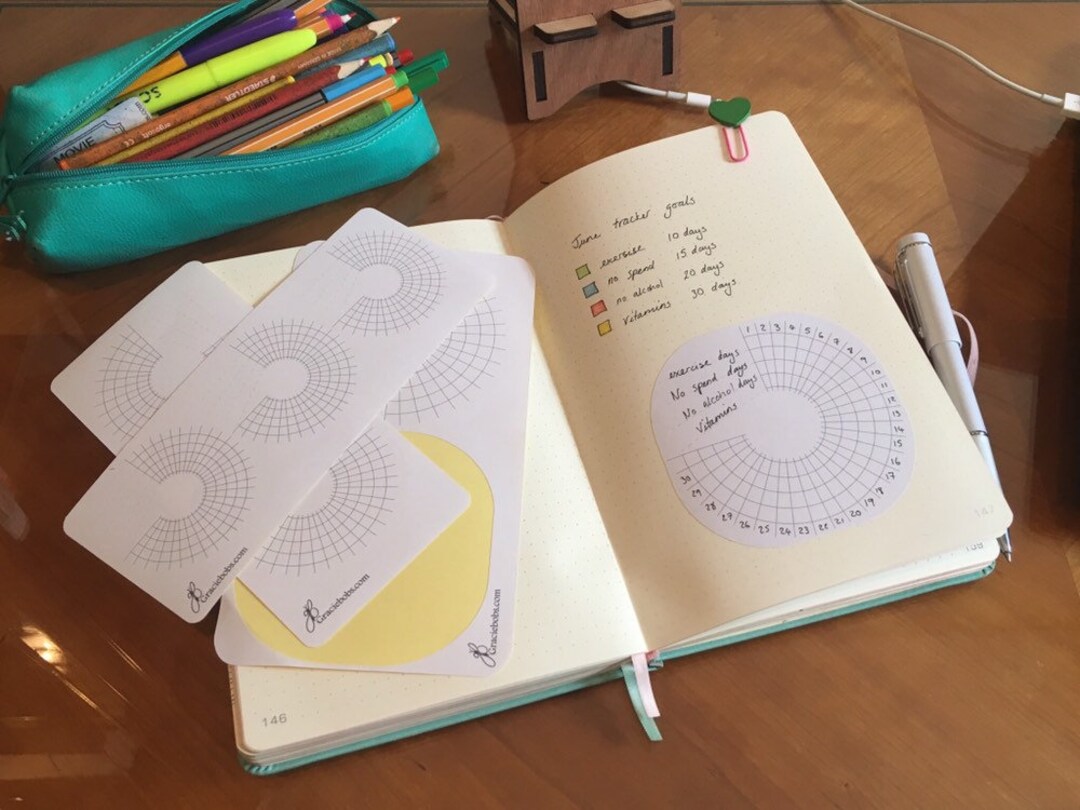 SC
STAEDTLER
MOVIE
June tracker goals
exercise 10 days
no spend 15 days
no alcohol 20 days
Vitamins 30 days
exercise days
No spend days
No alcohol days
Vitamins
1 2 3 4 5 6 7 8 9 10 11 12 13 14 15 16 17 18 19 20 21 22 23 24 25 26 27 28 29 30
Graciebobs.com
Graciebobs.com
Graciebobs.com
146